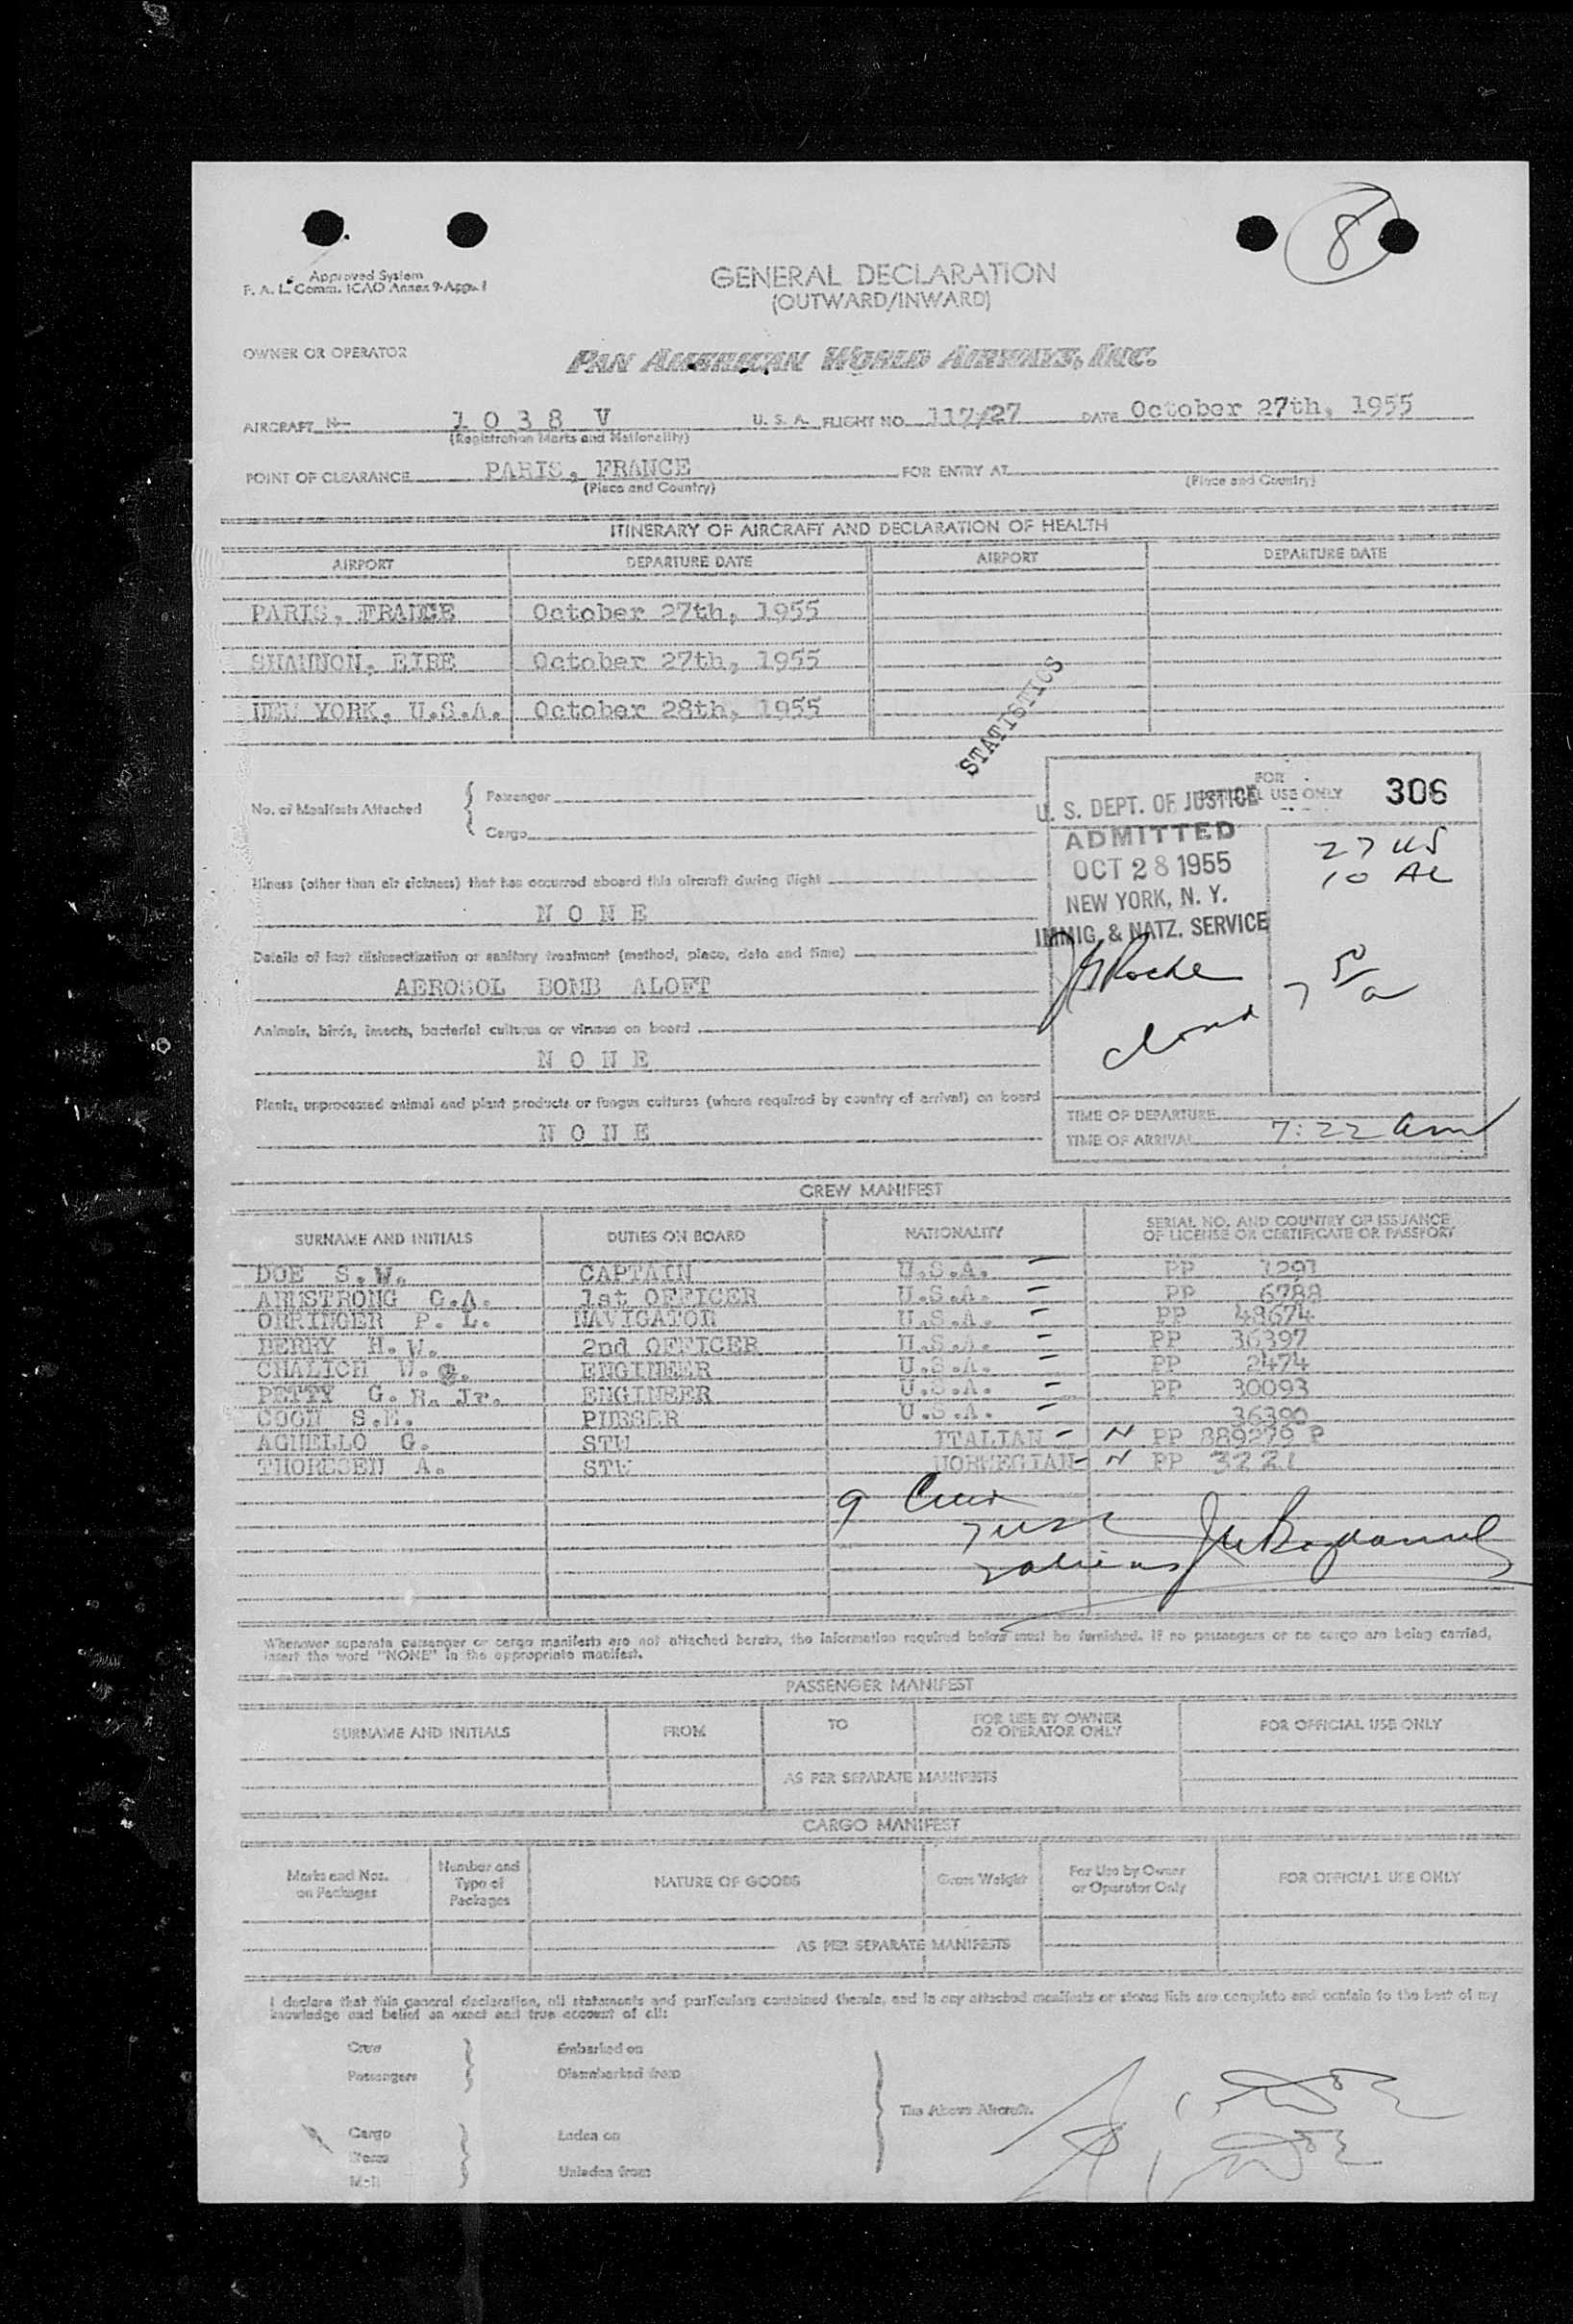 8
Approved System
F. A. L. Comm. ICAO Annex 9-App. 1
GENERAL DECLARATION
(OUTWARD/INWARD)
OWNER OR OPERATOR
PAN AMERICAN WORLD AIRWAYS, INC.
AIRCRAFT N- 1 0 3 8 V U. S. A. FLIGHT NO. 117/27 DATE October 27th, 1955
(Registration Marks and Nationality)
POINT OF CLEARANCE PARIS, FRANCE FOR ENTRY AT
(Place and Country) (Place and Country)
ITINERARY OF AIRCRAFT AND DECLARATION OF HEALTH
AIRPORT DEPARTURE DATE AIRPORT DEPARTURE DATE
PARIS, FRANCE October 27th, 1955
SHANNON, EIRE October 27th, 1955
NEW YORK, U.S.A. October 28th, 1955
STATISTICS
No. of Manifests Attached { Passenger
Cargo
FOR
USE ONLY 306
U. S. DEPT. OF JUSTICE
ADMITTED
OCT 28 1955
NEW YORK, N. Y.
IMMIG. & NATZ. SERVICE
27 US
10 AL
Illness (other than air sickness) that has occurred aboard this aircraft during flight
N O N E
Details of last disinsectization or sanitary treatment (method, place, date and time)
AEROSOL BOMB ALOFT
Roche
closed
Animals, birds, insects, bacterial cultures or viruses on board
N O N E
Plants, unprocessed animal and plant products or fungus cultures (where required by country of arrival) on board
N O N E
TIME OF DEPARTURE
TIME OF ARRIVAL 7:22 am
CREW MANIFEST
SURNAME AND INITIALS DUTIES ON BOARD NATIONALITY SERIAL NO. AND COUNTRY OF ISSUANCE
OF LICENSE OR CERTIFICATE OR PASSPORT
DOE S.W. CAPTAIN U.S.A. - PP 1291
ARMSTRONG C.A. 1st OFFICER U.S.A. - PP 6788
ORRINGER P. L. NAVIGATOR U.S.A. - PP 48674
BERRY H.W. 2nd OFFICER U.S.A. - PP 36397
CHALICH W.G. ENGINEER U.S.A. - PP 2474
PETTY G. R. Jr. ENGINEER U.S.A. - PP 30093
COON S.E. PURSER U.S.A. - 36390
AGNELLO G. STW ITALIAN - N PP 889279 P
THORDSEN A. STW NORWEGIAN - N PP 3221
9 Crew
7 USC
2 aliens
Whenever separate passenger or cargo manifests are not attached hereto, the information required below must be furnished. If no passengers or no cargo are being carried,
insert the word "NONE" in the appropriate manifest.
PASSENGER MANIFEST
SURNAME AND INITIALS FROM TO FOR USE BY OWNER
OR OPERATOR ONLY FOR OFFICIAL USE ONLY
AS PER SEPARATE MANIFESTS
CARGO MANIFEST
Marks and Nos.
on Packages Number and
Type of
Packages NATURE OF GOODS Gross Weight For Use by Owner
or Operator Only FOR OFFICIAL USE ONLY
AS PER SEPARATE MANIFESTS
I declare that this general declaration, all statements and particulars contained therein, and in any attached manifests or stores lists are complete and contain to the best of my
knowledge and belief an exact and true account of all:
Crew Embarked on
Passengers Disembarked from
The Above Aircraft.
Cargo Laden on
Stores
Mail Unladen from